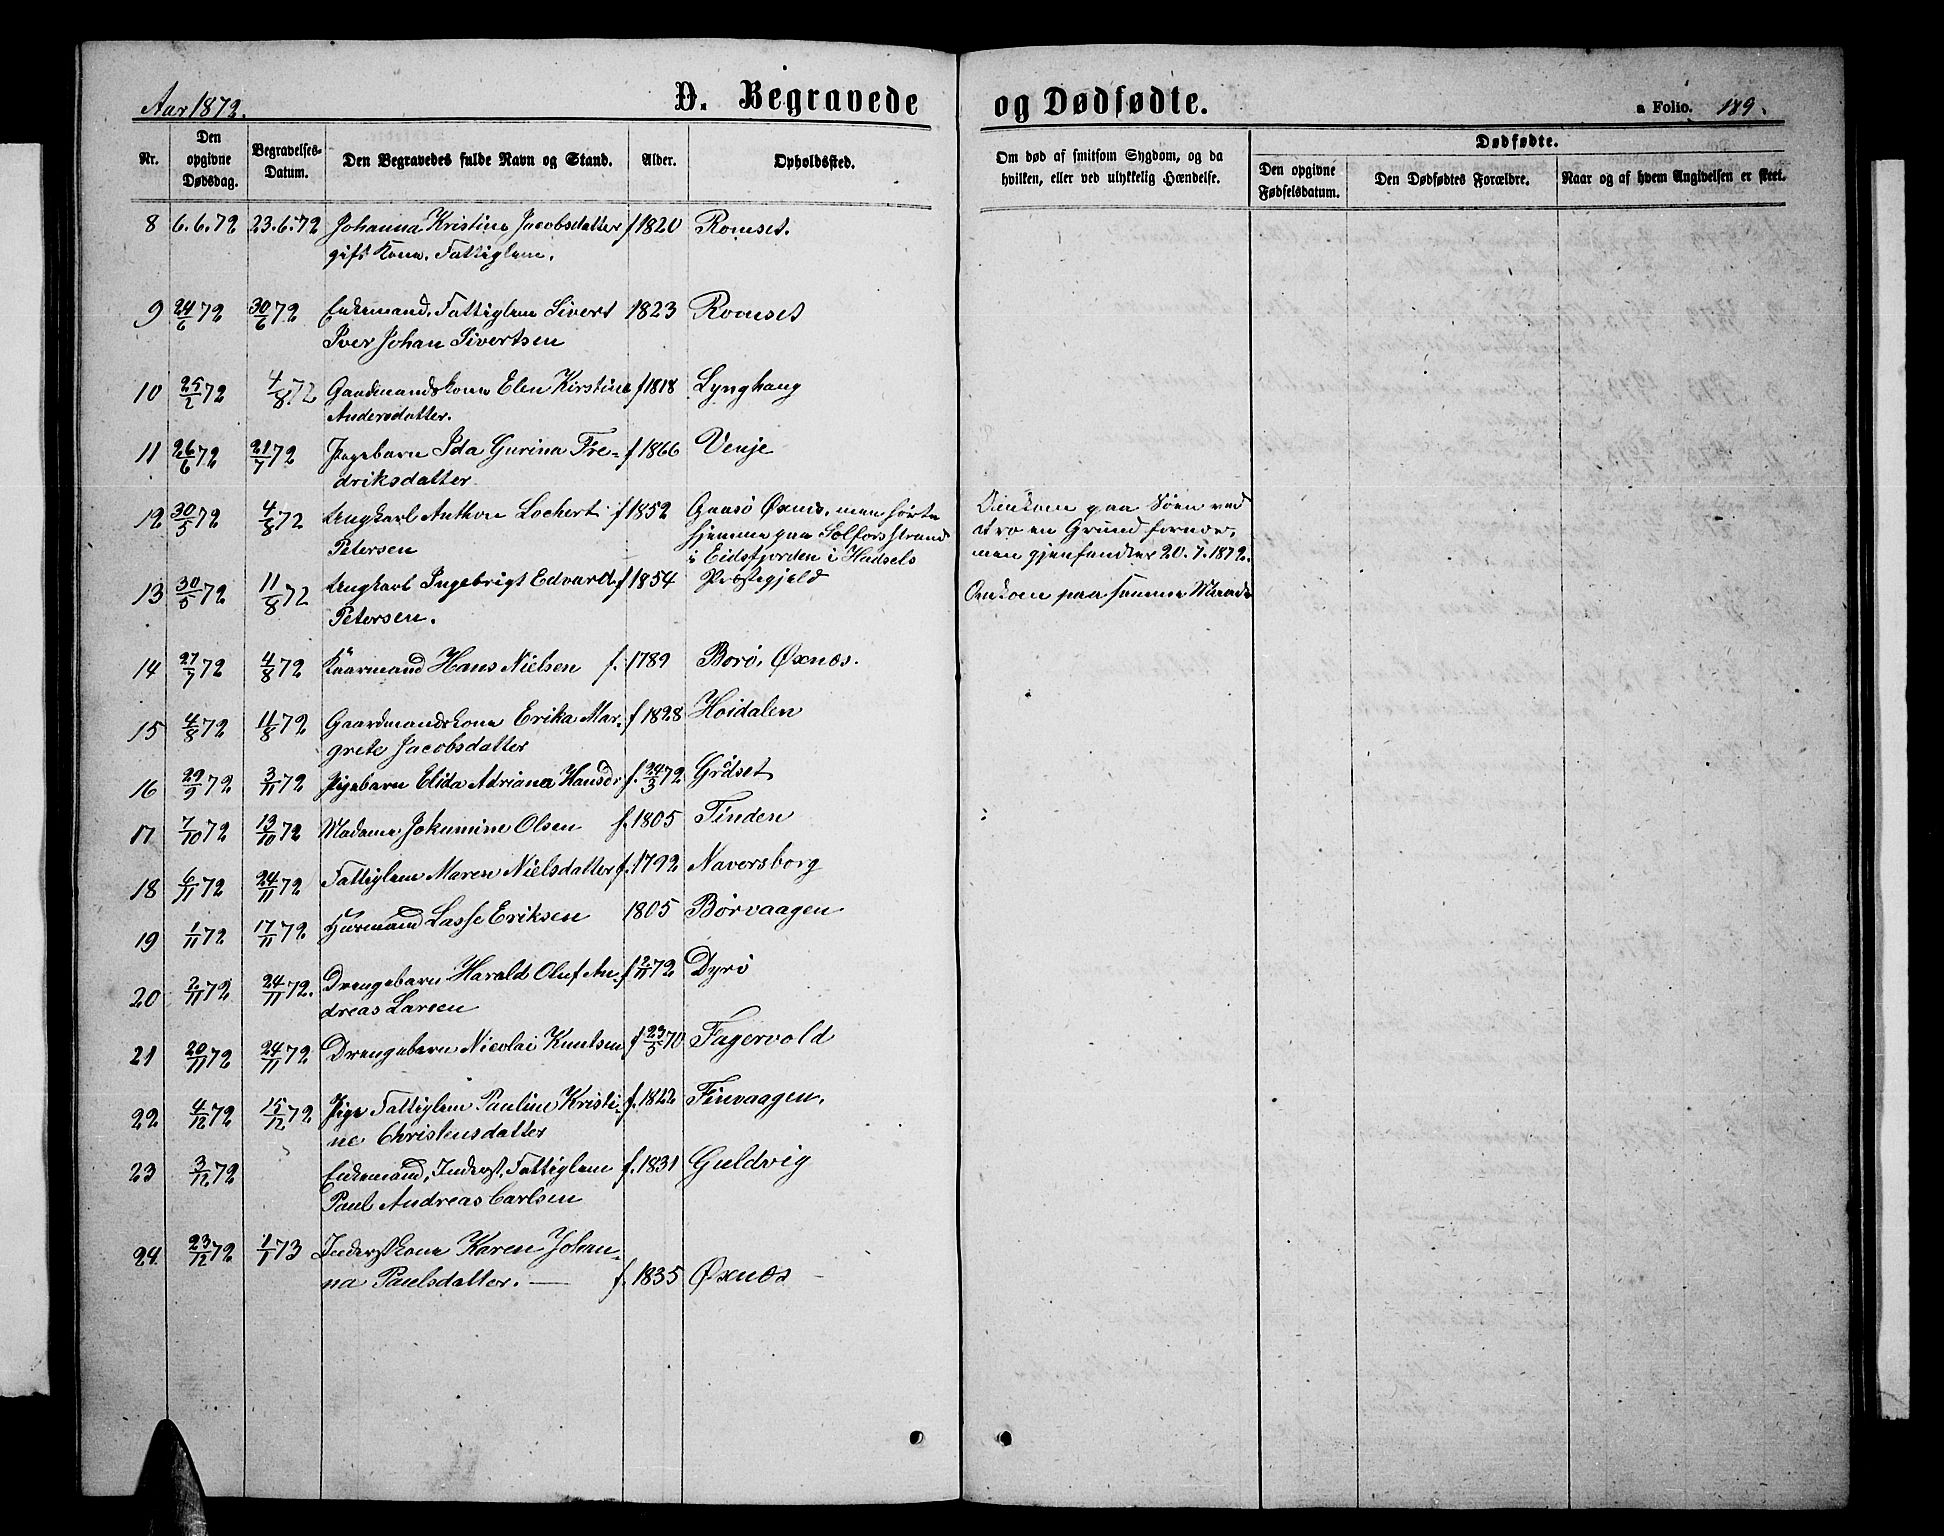 Aar 1872.
D. Begravede og Dødfødte.
a Folio. 189.
Nr.
Den opgivne Dødsdag.
Begravelses-Datum.
Den Begravedes fulde Navn og Stand.
Alder.
Opholdssted.
Om død af smitsom Sygdom, og da hvilken, eller ved ulykkelig Hændelse.
Dødfødte.
Den opgivne Fødselsdatum.
Den Dødfødtes Forældre.
Naar og af hvem Angivelsen er skeet.
8 6.6.72 23.6.72 Johanna Kristine Jacobsdatter f 1820 Romset.
gift Kone. Fattiglem.
9 24/6 72 30/6 72 Enkemand, Fattiglem Sivert 1823 Romset
Iver Johan Sivertsen
10 25/2 72 4/8 72 Gaardmandskone Elen Kirstine f 1818 Lynghaug
Andersdatter.
11 26/6 72 21/7 72 Pigebarn Ida Gurina Fre- f 1866 Venje
driksdatter
12 30/5 72 4/8 72 Ungkarl Anthon Lochert f 1852 Gaasø Øxnes, men hørte
Petersen hjemme paa Solforsstrand
i Eidsfjorden i Hadsels
Præstegjeld
Omkom paa Søen ved
at ro en Grund fornær,
men gjenfandtes 20.7.1872.
13 30/5 72 11/8 72 Ungkarl Ingebrigt Edvard f 1854
Petersen.
Omkom paa samme Maade
14 27/7 72 4/8 72 Kaarmand Hans Nielsen f. 1789 Borø, Øxnæs.
15 4/8 72 11/8 72 Gaardmandskone Erika Mar- f 1828 Hoidalen
grete Jacobsdatter
16 29/9 72 3/11 72 Pigebarn Elida Adriana Hansdr f. 24/3 72 Grødset
17 7/10 72 13/10 72 Madame Jokumine Olsen f. 1805 Tinden
18 6/11 72 24/11 72 Fattiglem Maren Nielsdatter f. 1792 Naversborg
19 1/11 72 17/11 72 Husmand Lasse Eriksen 1805 Børvaagen
20 2/11 72 24/11 72. Drengebarn Harald Oluf An- f 2/11 72 Dyrø
dreas Larsen
21 20/11 72 24/11 72 Drengebarn Nicolai Knutsen f 23/5 70 Fagervold
22 4/12 72 15/12 72 Pige Fattiglem Pauline Kristi- f. 1822 Finvaagen.
ne Christensdatter
23 3/12 72 Enkemand, Inderst, Fattiglem f. 1831 Guldvig
Paul Andreas Carlsen
24 23/12 72 1/1 73 Inderstkone Karen Johan-
na Paulsdatter. — f. 1835 Øxnæs